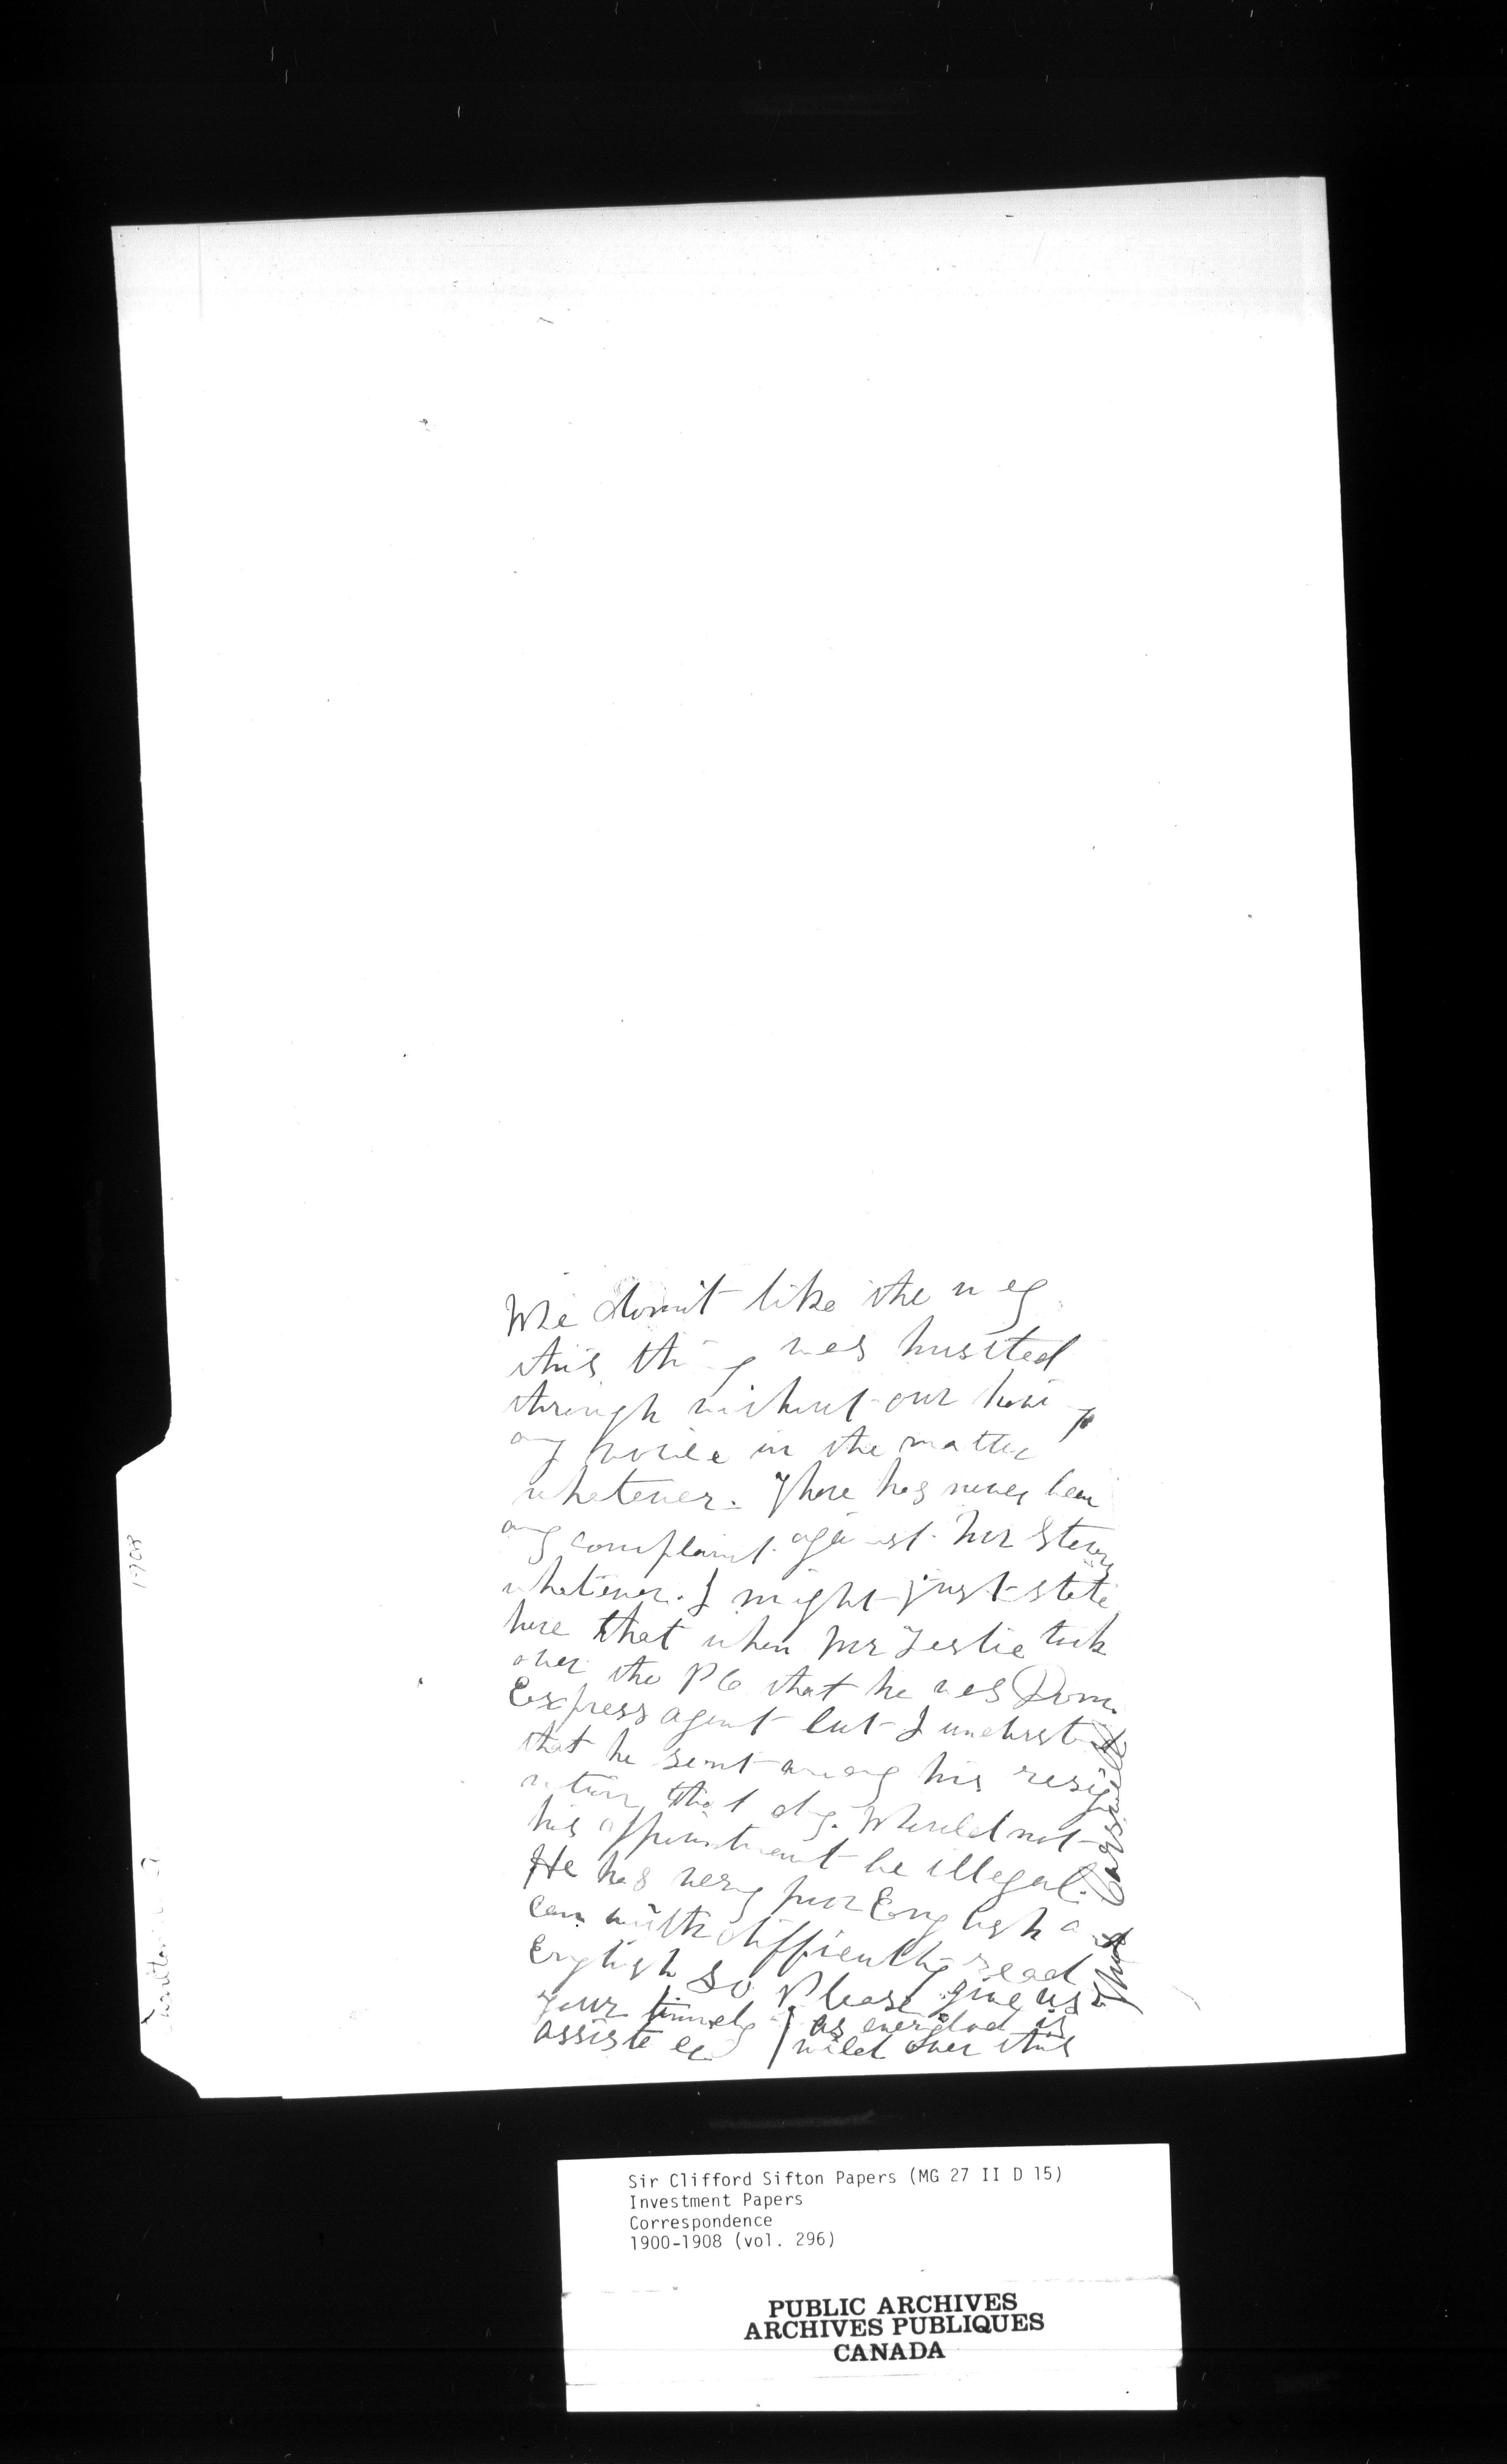 We don't like the way
this thing was hustled
through without our having
any voice in the matter
whatever. There has never been
any complaint against Mr Steen
whatever. I might just state
here that when Mr Leslie took
over the PO that he was Dom.
Express agent but I understand
that he sent away his resig
nation that day. Would not
his appointment be illegal.
He has very poor English and
can with difficulty read
English so Please give us
your timely
assistance
as everybod is
wild over this
Thos Carswell
1908
Sir Clifford Sifton Papers (MG 27 II D 15)
Investment Papers
Correspondence
1900-1908 (vol. 296)
PUBLIC ARCHIVES
ARCHIVES PUBLIQUES
CANADA